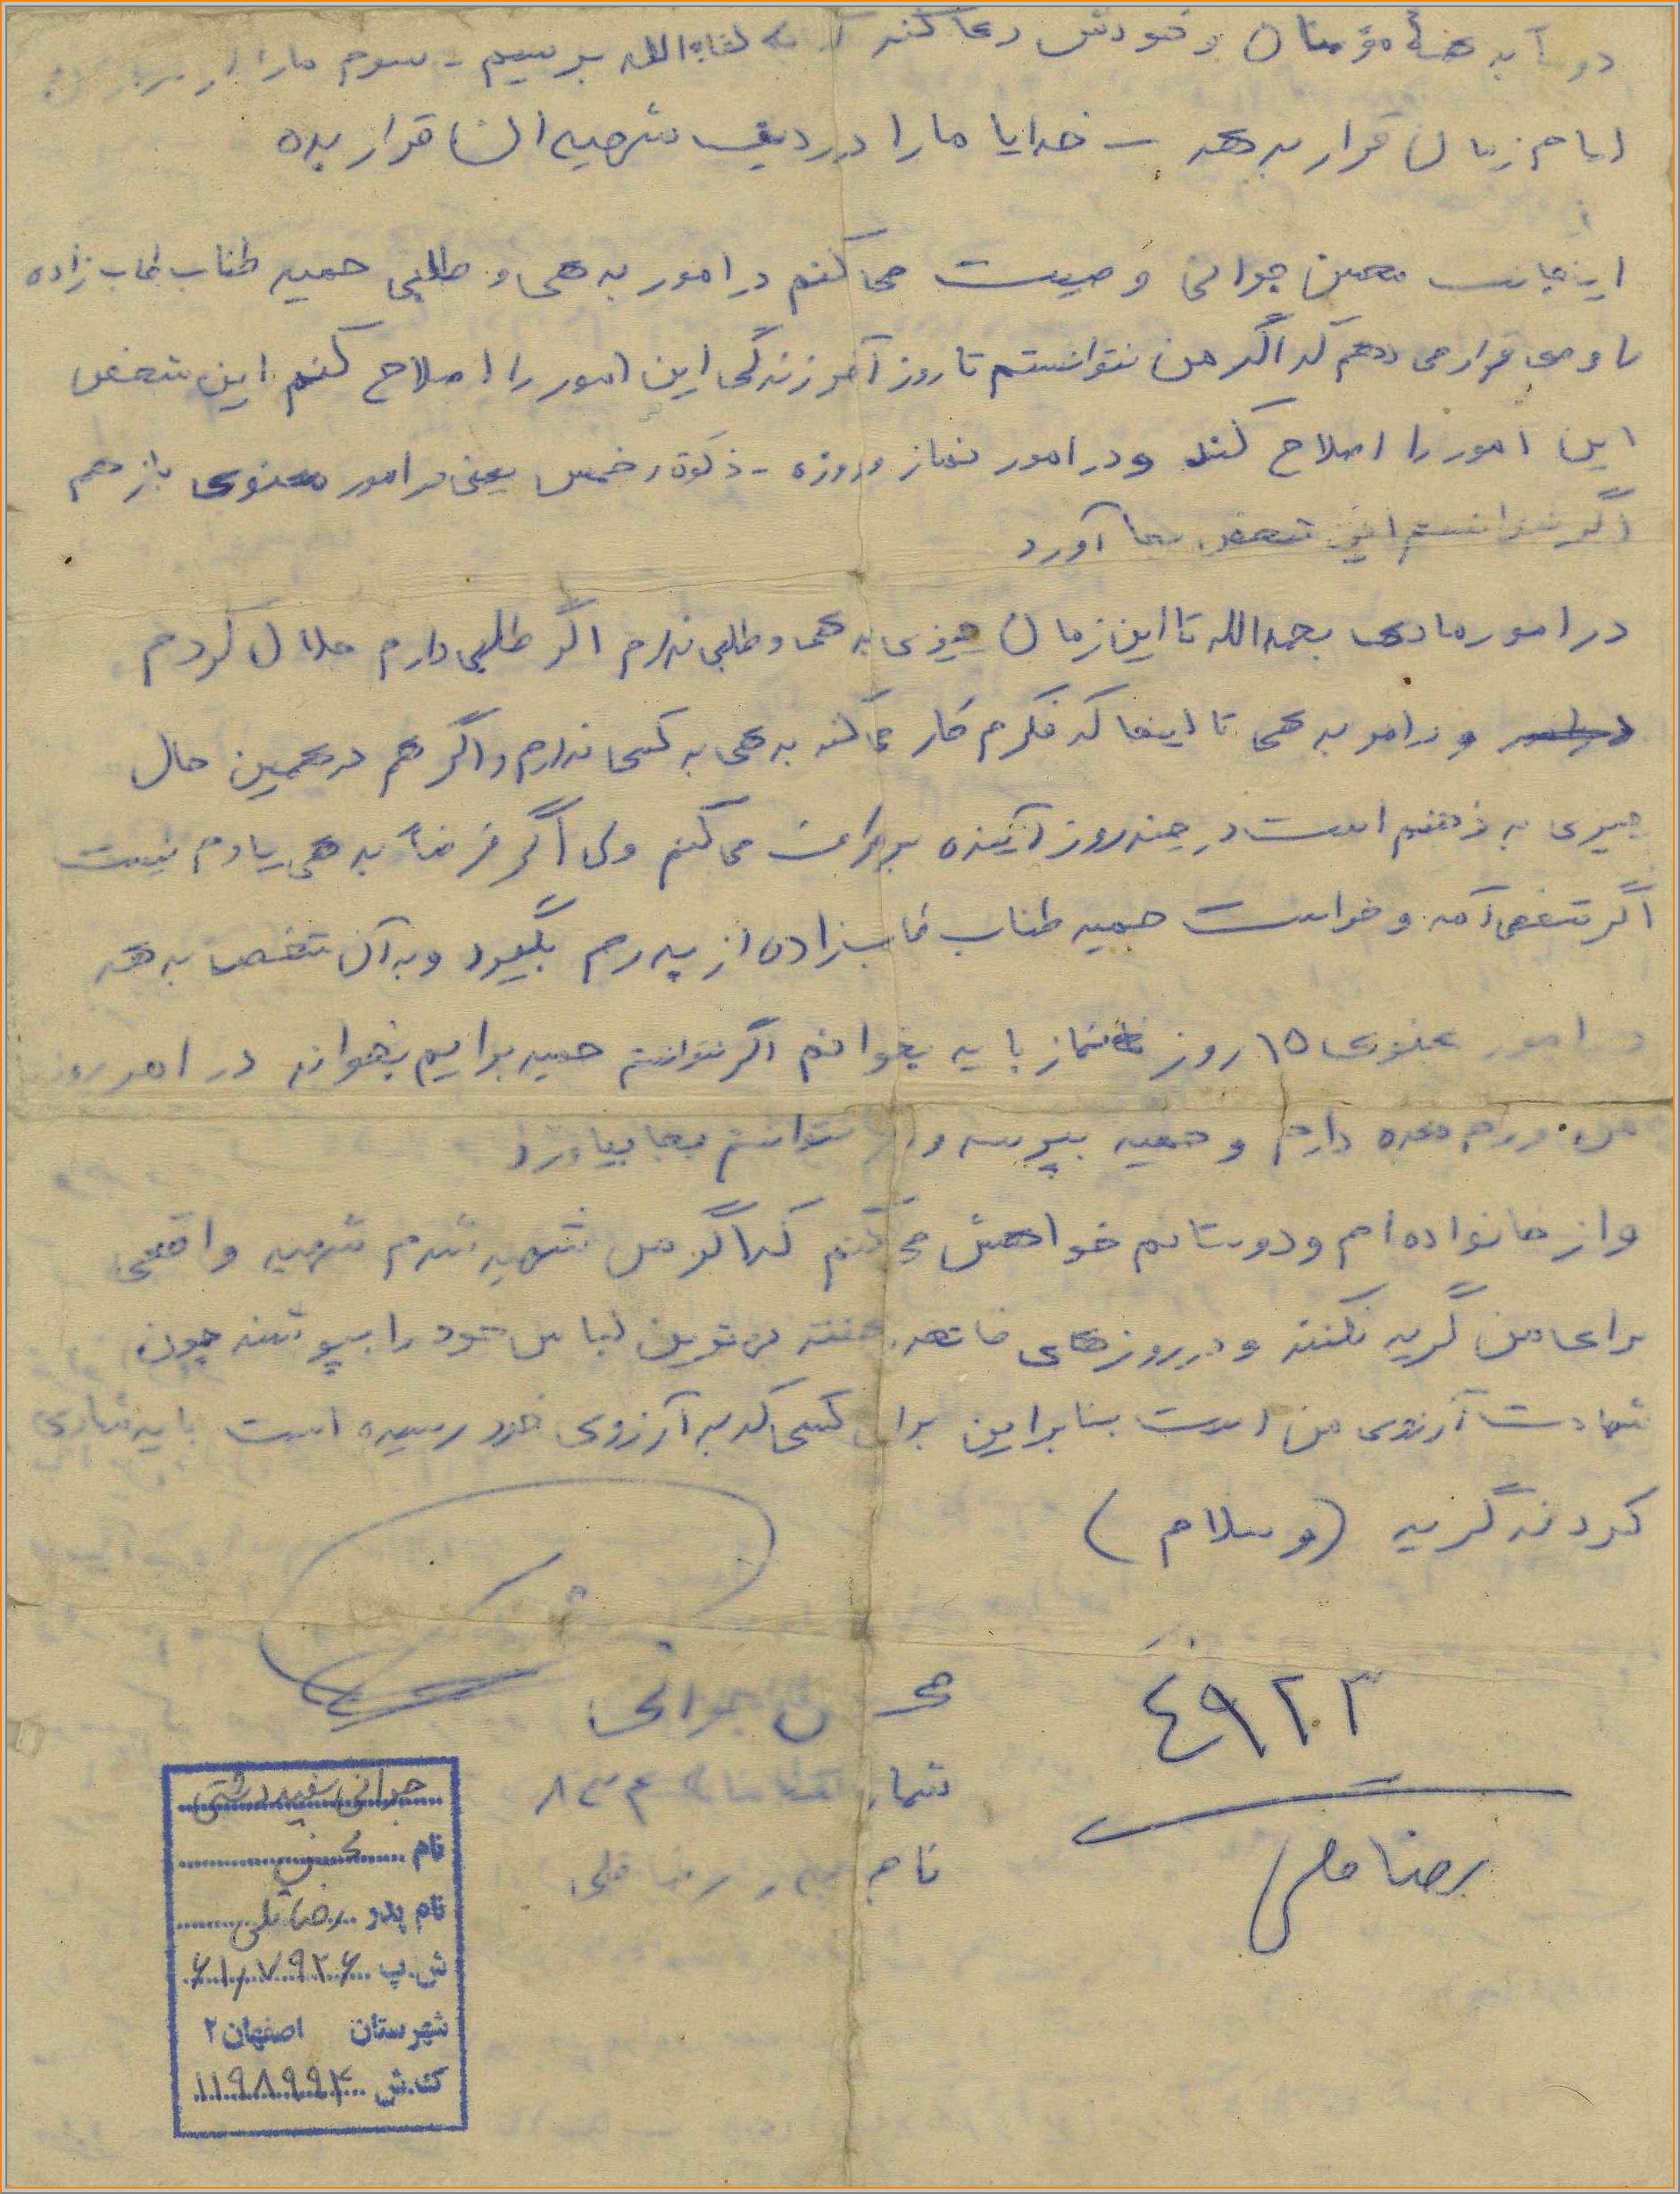 دوماً به همهٔ مؤمنان و خودش دعا کند که به لقاءالله برسیم - سوم ما را از
امام زمان قرار بدهد - خدایا ما را در ردیف شهیدان قرار بده
اینجانب محسن جوانی وصیت می کنم در امور بدهی و طلبی حمید طناب قاب زاده
را وصی قرار می دهم که اگر من نتوانستم تا روز آخر زندگی این امور را اصلاح کنم این شخص
این امور را اصلاح کند و در امور نماز و روزه - ذکوة و خمس یعنی در امور معنوی باز هم
اگر نتوانستم این شخص بجا آورد
در امور مادی بحمدالله تا این زمان چیزی بدهی و طلبی ندارم اگر طلبی دارم حلال کردم
و در امر بدهی تا اینجا که فکرم کار می کند بدهی به کسی ندارم و اگر هم در همین حال
چیزی به ذهنم است در چند روز آینده پرداخت می کنم ولی اگر فرضاً بدهی یادم نیست
اگر شخصی آمد و خواست حمید طناب قاب زاده از پدرم بگیرد و به آن شخص بدهد
در امور معنوی ۱۵ روز نماز باید بخوانم اگر نتوانستم حمید برایم بخواند در امر روزه
من ورم معده دارم و حمید بپرسد و اگر نتوانستم بجا بیاورد
و از خانواده ام و دوستانم خواهش می کنم که اگر من شهید شدم شهید واقعی
برای من گریه نکنند و در روزهای فاتحه، هفته من نوین لباس خود را بپوشند چون
شهادت آرزوی من است بنابراین برای کسی که به آرزوی خود رسیده است باید شادی
کرد نه گریه (وسلام)
محسن جوانی
شماره شناسنامه
نام پدر رضا قلی
٤۹۲۳
رضا قلی
جوانی سفید دشتی
نام محسن
نام پدر رضا قلی
ش.پ ۶۱٫۷۹۲۶
شهرستان اصفهان ۲
کد.ش ۱۱۹۸۹۹۴